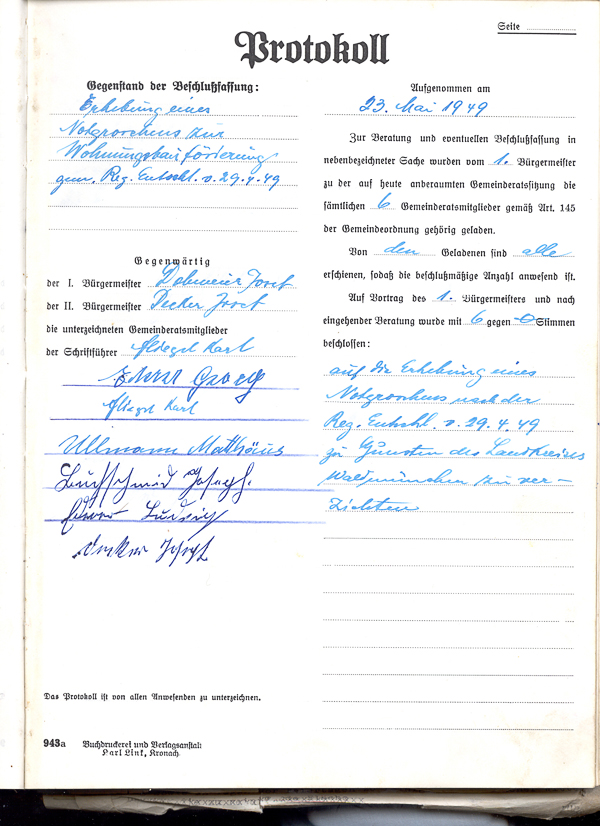 Seite
Protokoll
Gegenstand der Beschlußfassung:
Erhebung eines
Notgroschens zur
Wohnungsbauförderung
gem. Reg. Entschl. v. 29.4.49
Gegenwärtig
der I. Bürgermeister
der II. Bürgermeister Decker Josef
die unterzeichneten Gemeinderatsmitglieder
der Schriftführer Karl
Georg
Karl
Ullmann Matthäus
Buchschmid Joseph.
Ludwig
Decker Josef
Das Protokoll ist von allen Anwesenden zu unterzeichnen.
943a Buchdruckerei und Verlagsanstalt
Karl Link, Kronach
Aufgenommen am
23. Mai 1949
Zur Beratung und eventuellen Beschlußfassung in
nebenbezeichneter Sache wurden vom 1. Bürgermeister
zu der auf heute anberaumten Gemeinderatssitzung die
sämtlichen 6 Gemeinderatsmitglieder gemäß Art. 145
der Gemeindeordnung gehörig geladen.
Von den Geladenen sind alle
erschienen, sodaß die beschlußmäßige Anzahl anwesend ist.
Auf Vortrag des 1. Bürgermeisters und nach
eingehender Beratung wurde mit 6 gegen 0 Stimmen
beschlossen:
auf die Erhebung eines
Notgroschens nach der
Reg. Entschl. v. 29.4.49
zu Gunsten des Landkreises
Waldmünchen zu ver-
zichten